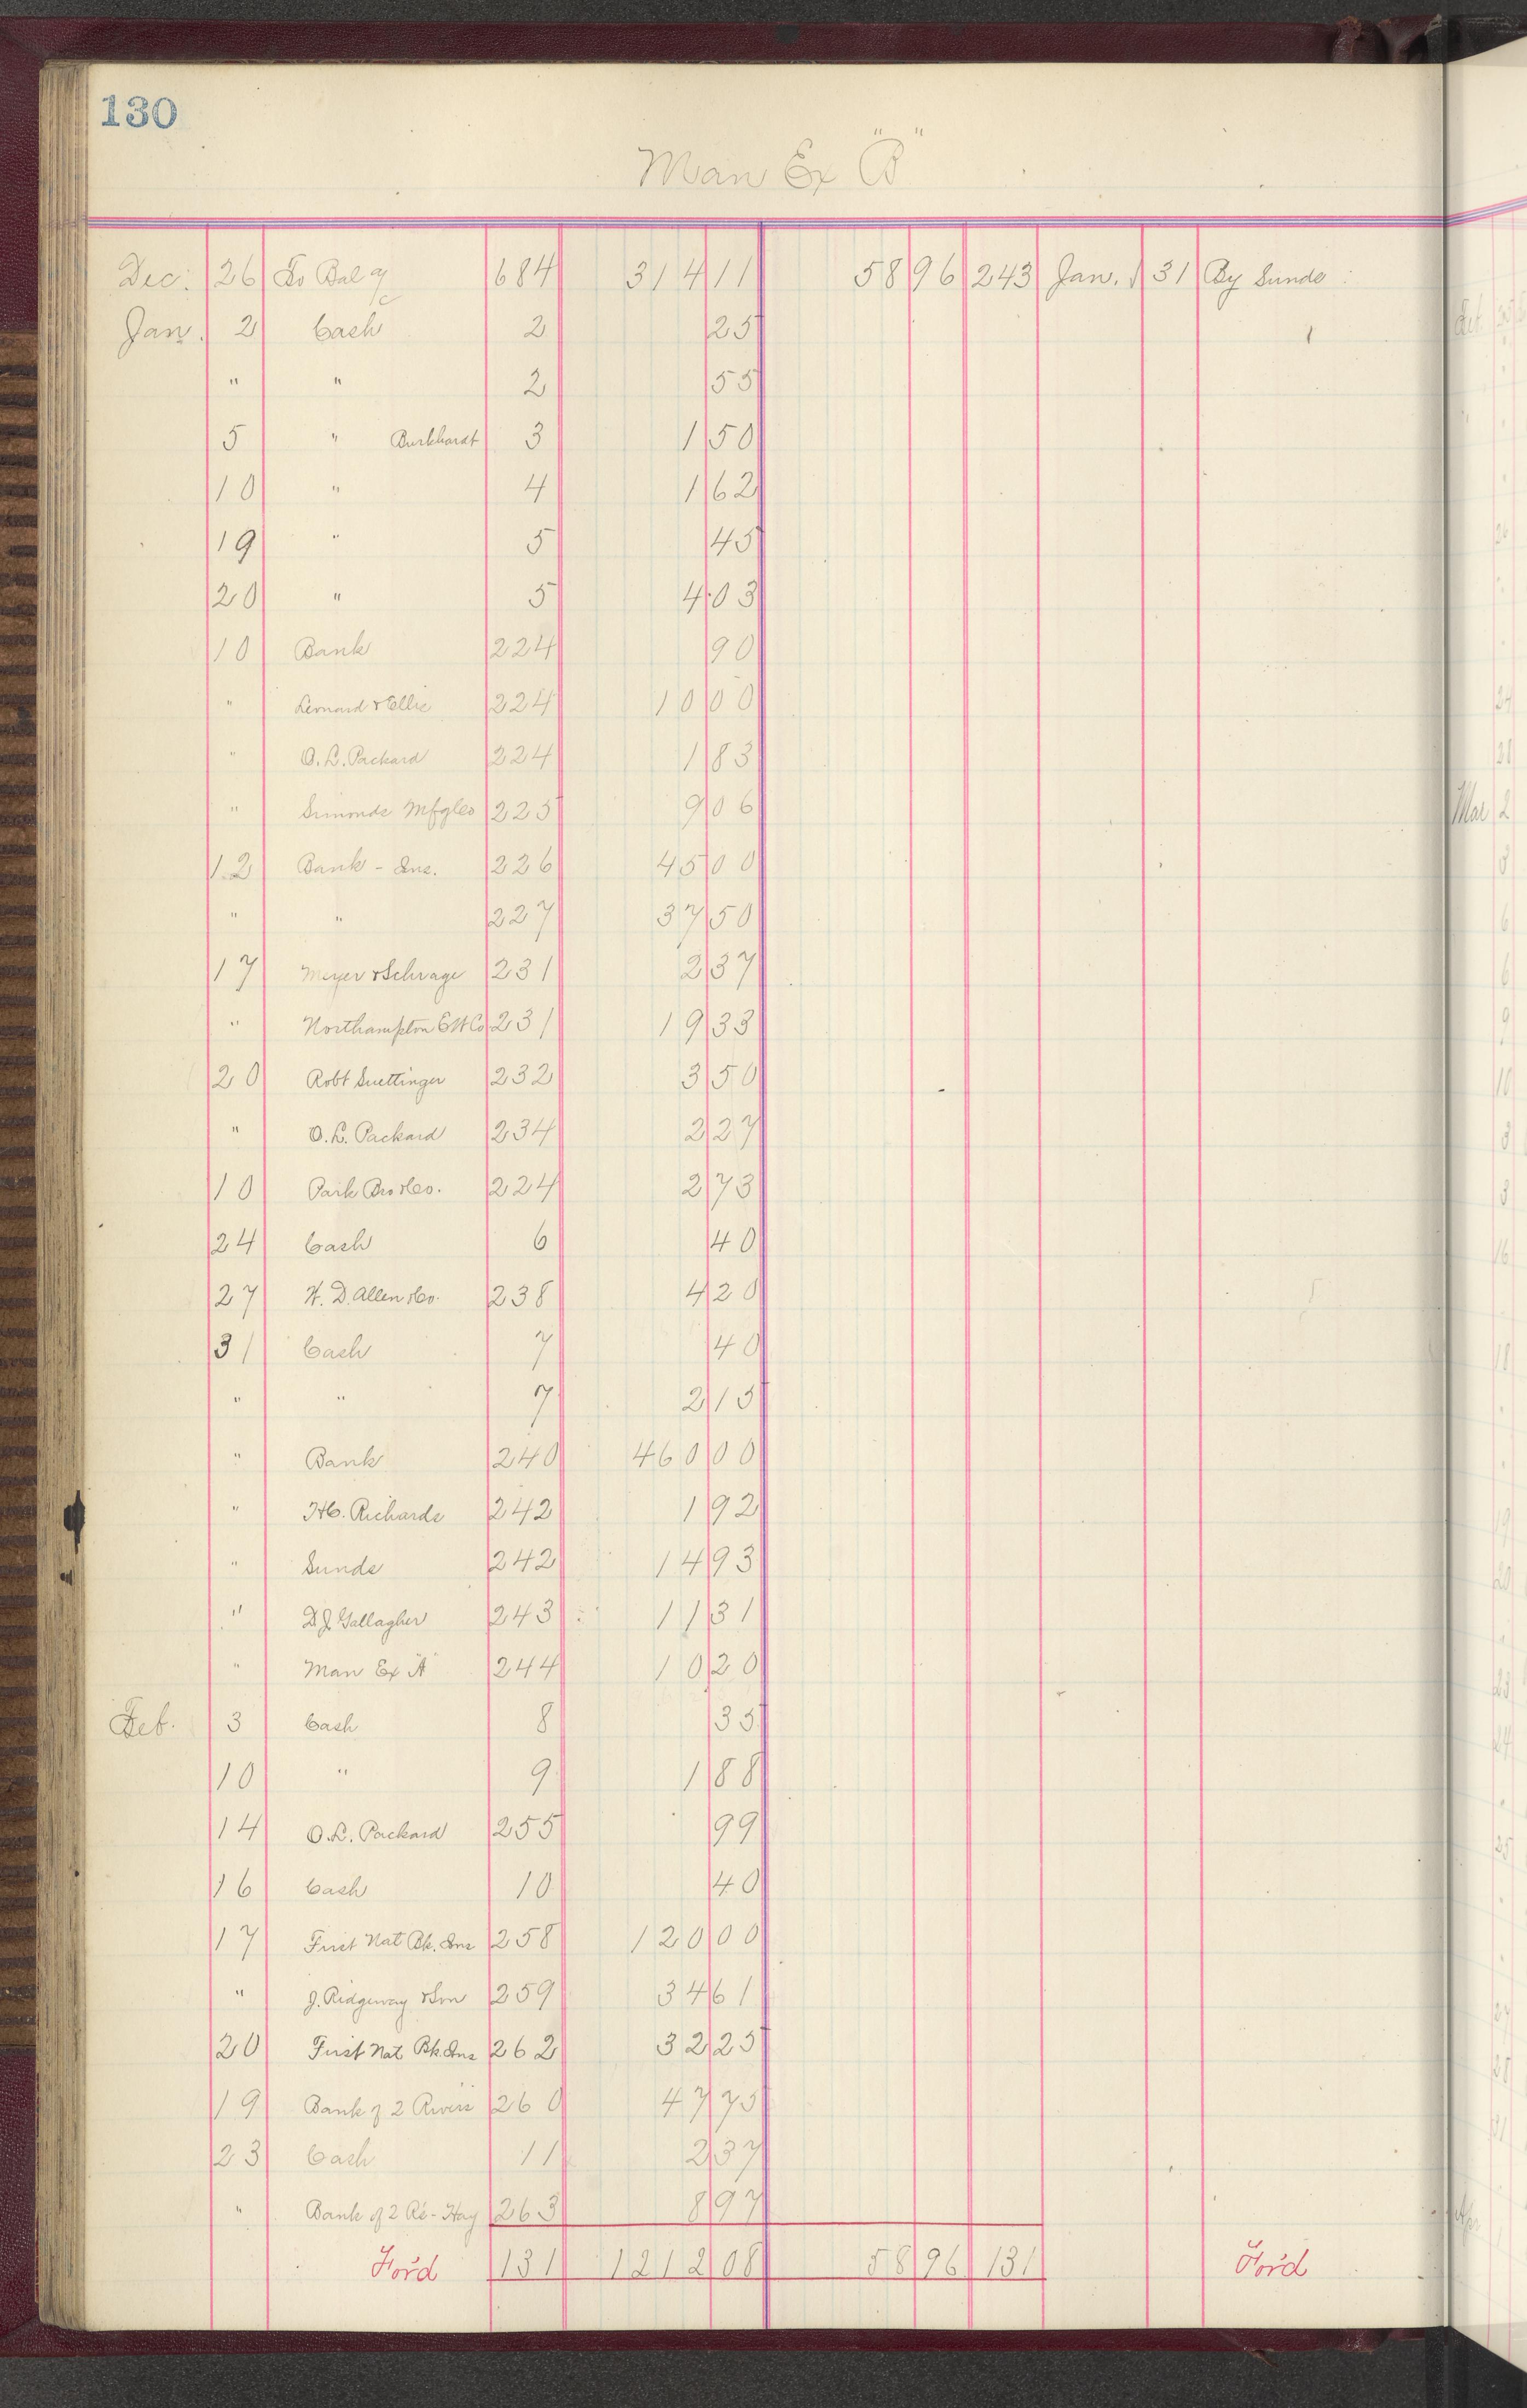 130
Man Ex "B"
Dec. 26 To Bal a/c 684 314 11 58 96 243 Jan. 31 By Sunds
Jan. 2 Cash 2 25
" " 2 55
5 " Burkhardt 3 1 50
10 " 4 1 62
19 " 5 45
20 " 5 4 03
10 Bank 224 90
" Leonard & Ellis 224 10 00
" O. L. Packard 224 1 83
" Simonds Mfg Co 225 9 06
12 Bank - Ins. 226 45 00
" " 227 37 50
17 Meyer & Schrage 231 2 37
" Northampton E W Co 231 19 33
20 Robt Suettinger 232 3 50
" O. L. Packard 234 2 27
10 Park Bro & Co. 224 2 73
24 Cash 6 40
27 W. D. Allen & Co. 238 4 20
31 Cash 7 40
" " 7 2 15
" Bank 240 460 00
" Richards 242 1 92
" Sunds 242 14 93
" D J Gallagher 243 11 31
" Man Ex "A" 244 10 20
Feb. 3 Cash 8 35
10 " 9 1 88
14 O. L. Packard 255 99
16 Cash 10 40
17 First Nat Bk. Ins 258 120 00
" J. Ridgeway & Son 259 34 61
20 First Nat Bk. Ins 262 32 25
19 Bank of 2 Rivers 260 47 75
23 Cash 11 2 37
" Bank of 2 Rs - Hay 263 8 97
For'd 131 1212 08 58 96 131 For'd